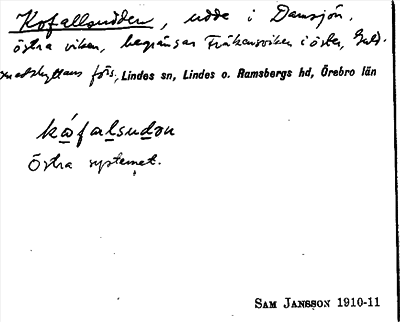 Kofallsudden, udde i Damsjön,
östra viken, begränsar Fräkensviken i öster, Guld-
smedshyttans förs, Lindes sn, Lindes o. Ramsbergs hd, Örebro län
kåfalsudən
Östra systemet.
SAM JANSSON 1910-11